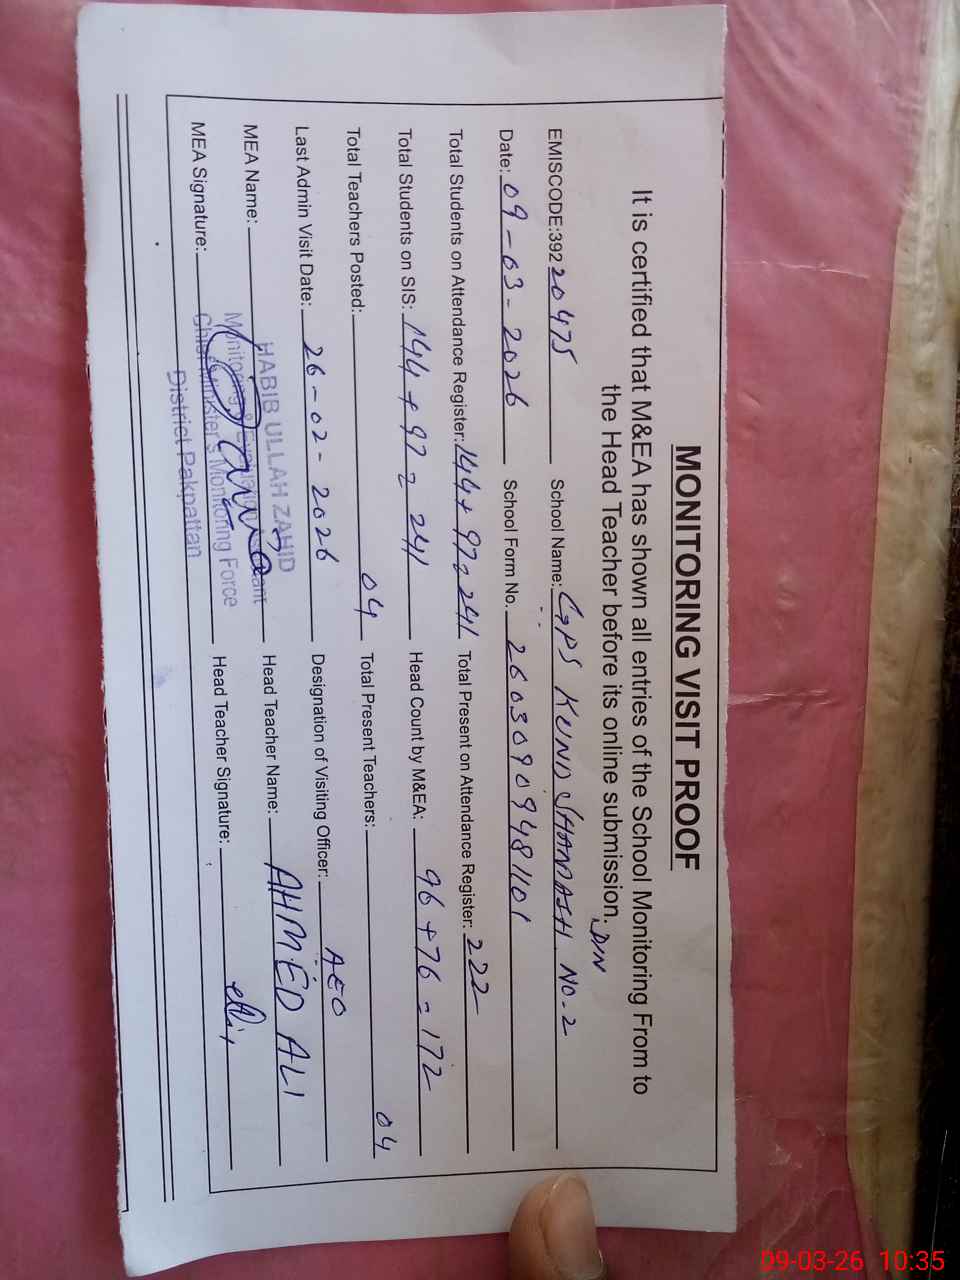 MONITORING VISIT PROOF
It is certified that M&EA has shown all entries of the School Monitoring From to
the Head Teacher before its online submission.
DIN
EMISCODE:39220475 School Name: GPS KUND SHAMASH NO-2
Date: 09-03-2026 School Form No. 26030909481101
Total Students on Attendance Register: 144+97=241 Total Present on Attendance Register: 222
Total Students on SIS: 144+97=241 Head Count by M&EA: 96+76=172
Total Teachers Posted: 04 Total Present Teachers: 04
Last Admin Visit Date: 26-02-2026 Designation of Visiting Officer: AEO
MEA Name: HABIB ULLAH ZAHID Head Teacher Name: AHMED ALI
Monitoring & Evaluation Assistant
MEA Signature: Chief Minister's Monitoring Force Head Teacher Signature:
District Pakpattan
09-03-26 10:35